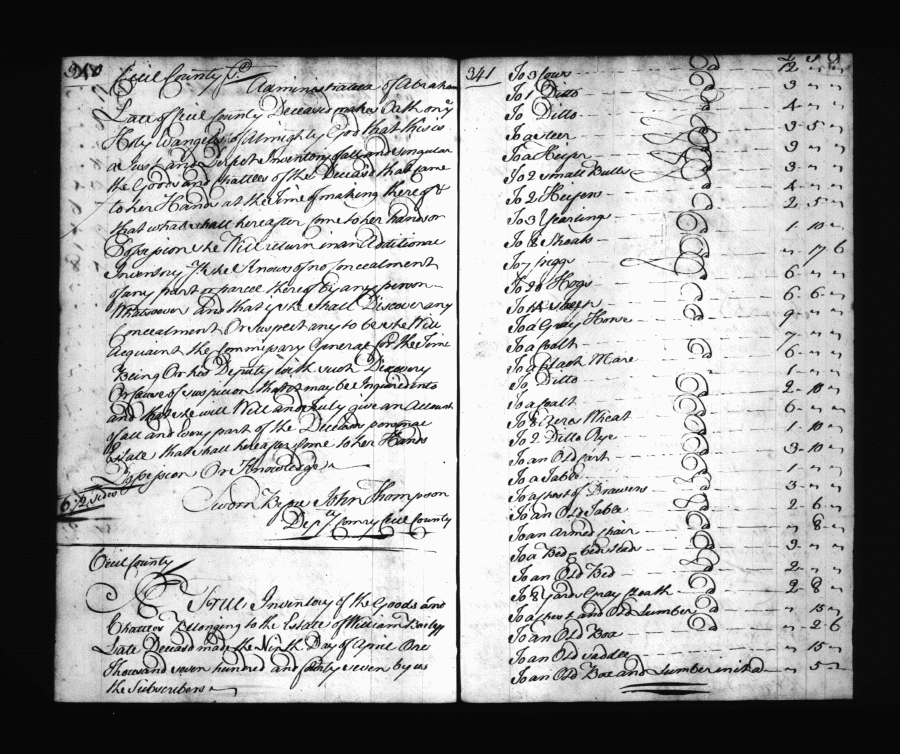 340
Cecil County Ss
Administratrix of Abraham
Late of Cecil County Deceased makes Oath on ye
Holy Evangels of Almighty God that this is
a Just and Perfect Inventory of all and singular
the Goods and Chattles of the Deceasd that came
to her Hands at the Time of making thereof &
that what shall hereafter Come to her hands or
Possession she Will return in an Additional
Inventory she Knows of no Concealment
of any part or parcel thereof by any person
Whatsoever and that if she Shall Discover any
Concealment Or suspect any to be she Will
Acquaint the Commissary General for the Time
Being Or his Deputy with such Discovery
Or Cause of suspicion that it may be Inquired into
and that she will Well and truly give an Account
of all and Every part of the Deceasds personal
Estate that shall hereafter Come to her Hands
Possession Or Knowledge
6 1/2 sides
Sworn Before John Thompson
Depty Comry Cecil County
Cecil County
A True Inventory of the Goods and
Chattles Belonging to the Estate of William
Late Deceasd made the Ninth Day of April One
Thousand seven hundred and forty seven by us
the Subscribers
341
To 3 Cows 12 " "
To 1 Ditto 3 " "
To Ditto 4 " "
To a steer 3 5 "
To a Heifer 3 " "
To 2 small Bulls 3 " "
To 2 Heifers 4 " "
To 3 Yearling 2 5 "
To 8 Shoats 1 10 "
To 7 piggs " 17 6
To 20 Hogs 6 " "
To sheep 6 6 "
To a Gray Horse 9 " "
To a Coalt 7 " "
To a Black Mare 6 " "
To Ditto 1 " "
To a Coalt 2 10 "
To 8 Acres Wheat 6 " "
To 2 Ditto Rye 1 10 "
To an Old Cart 3 10 "
To a Table 1 " "
To a Chest of Drawers 3 " "
To an Old Table 2 6 "
To an Armed Chair " 8 "
To a Bed & bedsted 3 " "
To an Old Bed 2 " "
To 8 yards Gray Cloath 2 8 "
To a Chest and Old Lumber " 15 "
To an Old Box " 2 6
To an Old saddle " 15 "
To an Old Box and Lumber in it " 5 "